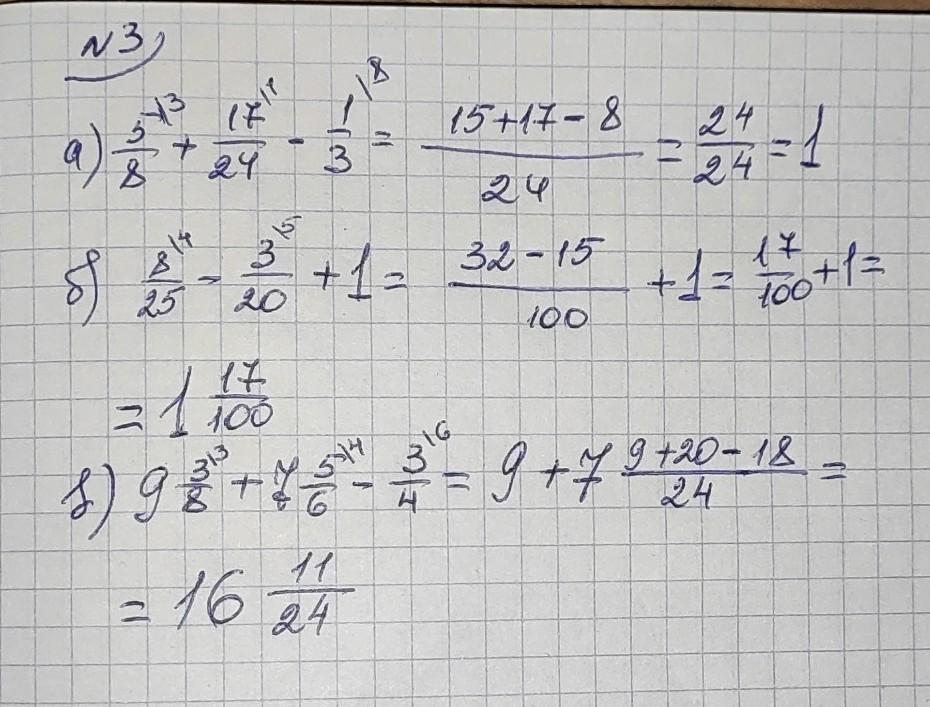 №3
а) 5/8\3 + 17/24\1 - 1/3\8 = (15+17-8)/24 = 24/24 = 1
б) 8/25\4 - 3/20\5 + 1 = (32-15)/100 + 1 = 17/100 + 1 =
= 1 17/100
в) 9 3/8\3 + 7 5/6\4 - 3/4\6 = 9 + 7 (9+20-18)/24 =
= 16 11/24